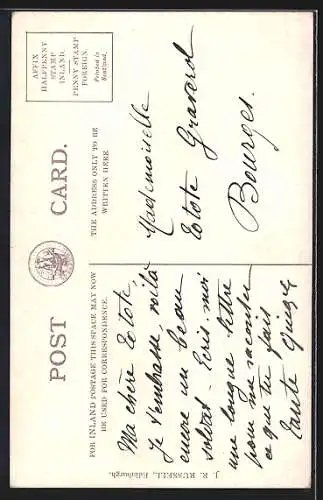 POST CARD.
FOR INLAND POSTAGE THIS SPACE MAY NOW
BE USED FOR CORRESPONDENCE.
THE ADDRESS ONLY TO BE
WRITTEN HERE
AFFIX
HALFPENNY
STAMP
INLAND.
PENNY STAMP
FOREIGN.
Printed in
Scotland.
Ma chère Totote,
Je t'embrasse, voilà
encore un beau
soldat - Ecris-moi
une longue lettre
pour me raconter
ce que tu fais
Tante
Mademoiselle
Totote
Bourges.
J. R. RUSSELL, Edinburgh.